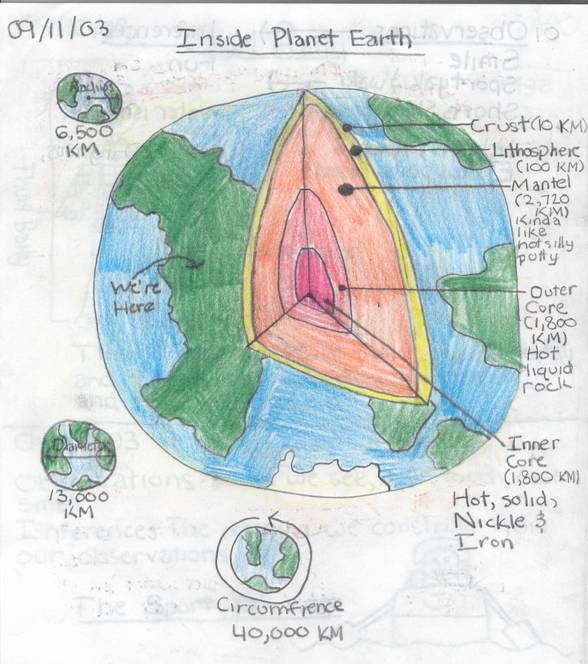 09/11/03
Inside Planet Earth
Radius
6,500
KM
Crust (10 KM)
Lithosphere
(100 KM)
Mantel
(2,720
KM)
Kinda
like
hot silly
putty
We're
Here
Outer
Core
(1,800
KM)
Hot
liquid
rock
Diameter
13,000
KM
Inner
Core
(1,800 KM)
Hot, solid,
Nickle &
Iron
Circumfrence
40,000 KM
Observations
Inferences
Smile
Fun